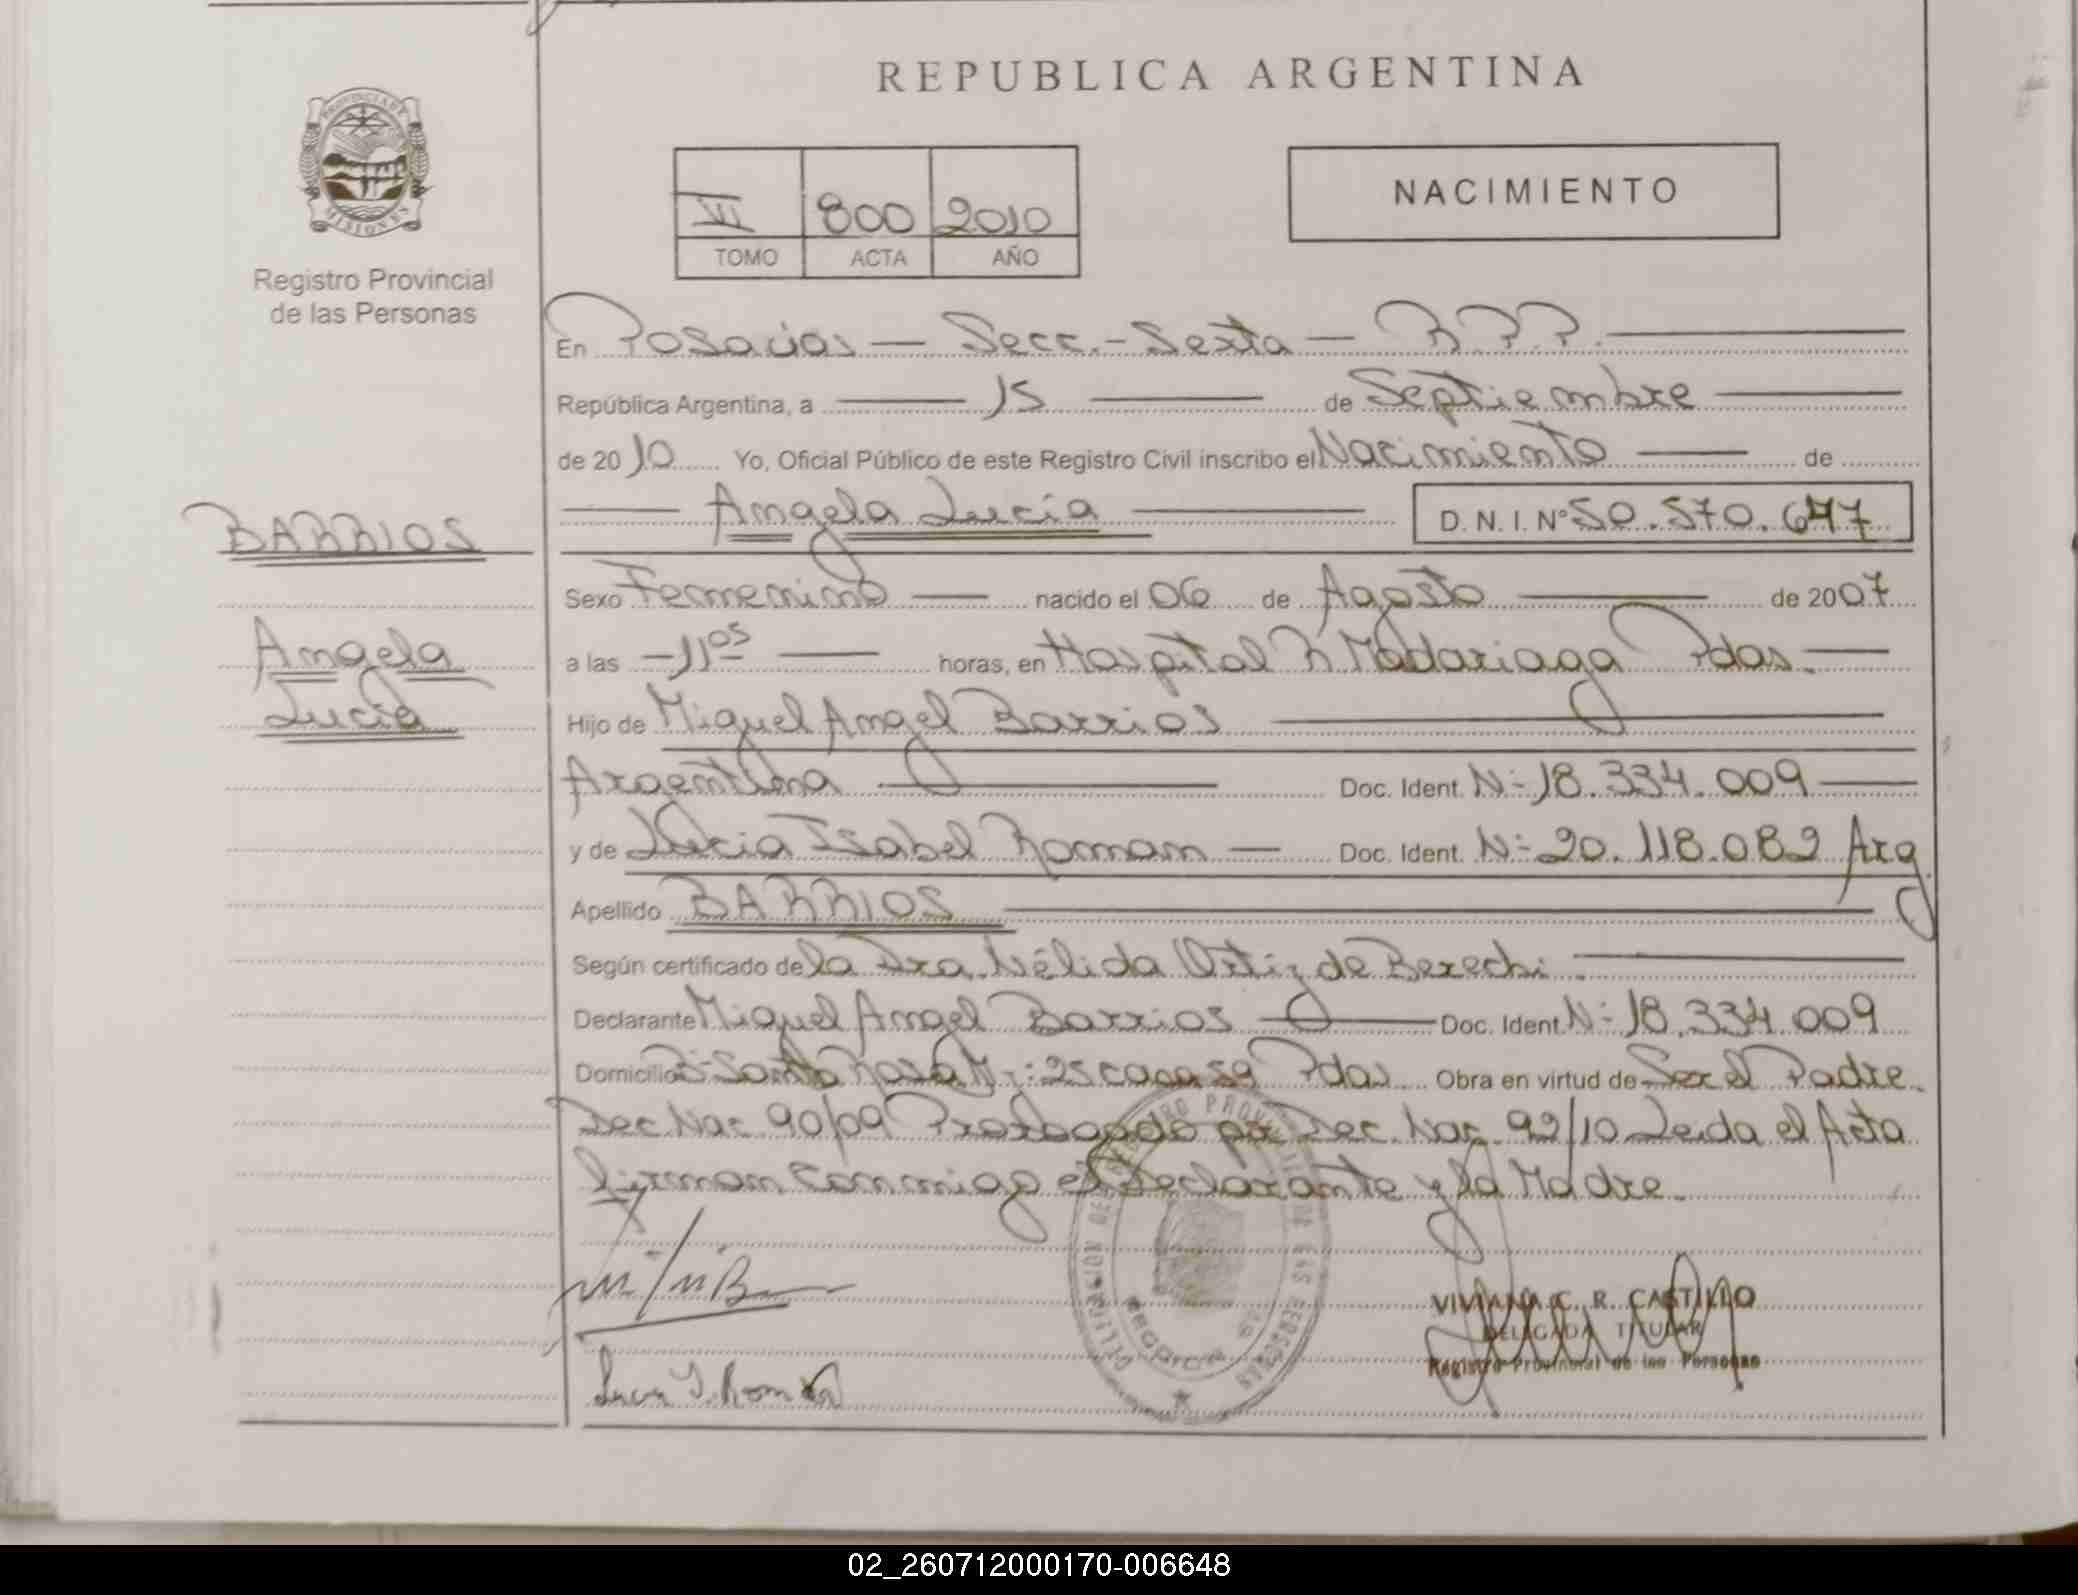 REPUBLICA ARGENTINA
PROVINCIA DE MISIONES
Registro Provincial
de las Personas
VI 800 2010
TOMO ACTA AÑO
NACIMIENTO
En Posadas — Secc. - Sexta — R P P.
República Argentina, a — 15 — de Septiembre —
de 2010 Yo, Oficial Público de este Registro Civil inscribo el Nacimiento — de
— Angela Lucía — D. N. I. Nº 50.570.647
BARRIOS
Angela
Lucía
Sexo Femenino — nacido el 06 de Agosto — de 2007
a las — 11 05 — horas, en Hospital R Madariaga Pdas. —
Hijo de Miguel Angel Barrios —
Argentina — Doc. Ident. Nº 18.334.009 —
y de Lucia Isabel Roman — Doc. Ident. Nº 20.118.082 Arg
Apellido BARRIOS —
Según certificado de la Dra. Nélida Ortiz de Berechi. —
Declarante Miguel Angel Barrios — Doc. Ident. Nº 18.334.009
Domicilio Bº Santa Rosa Mz: 25 casa 59 Pdas Obra en virtud de Ser el Padre.
Dec Nac 90/09 Prorrogado por Dec. Nac. 92/10 Leida el Acta
firman conmigo el Declarante y la Madre.
VIVIANA C. R. CASTILLO
DELEGADA TITULAR
Registro Provincial de las Personas
02_260712000170-006648